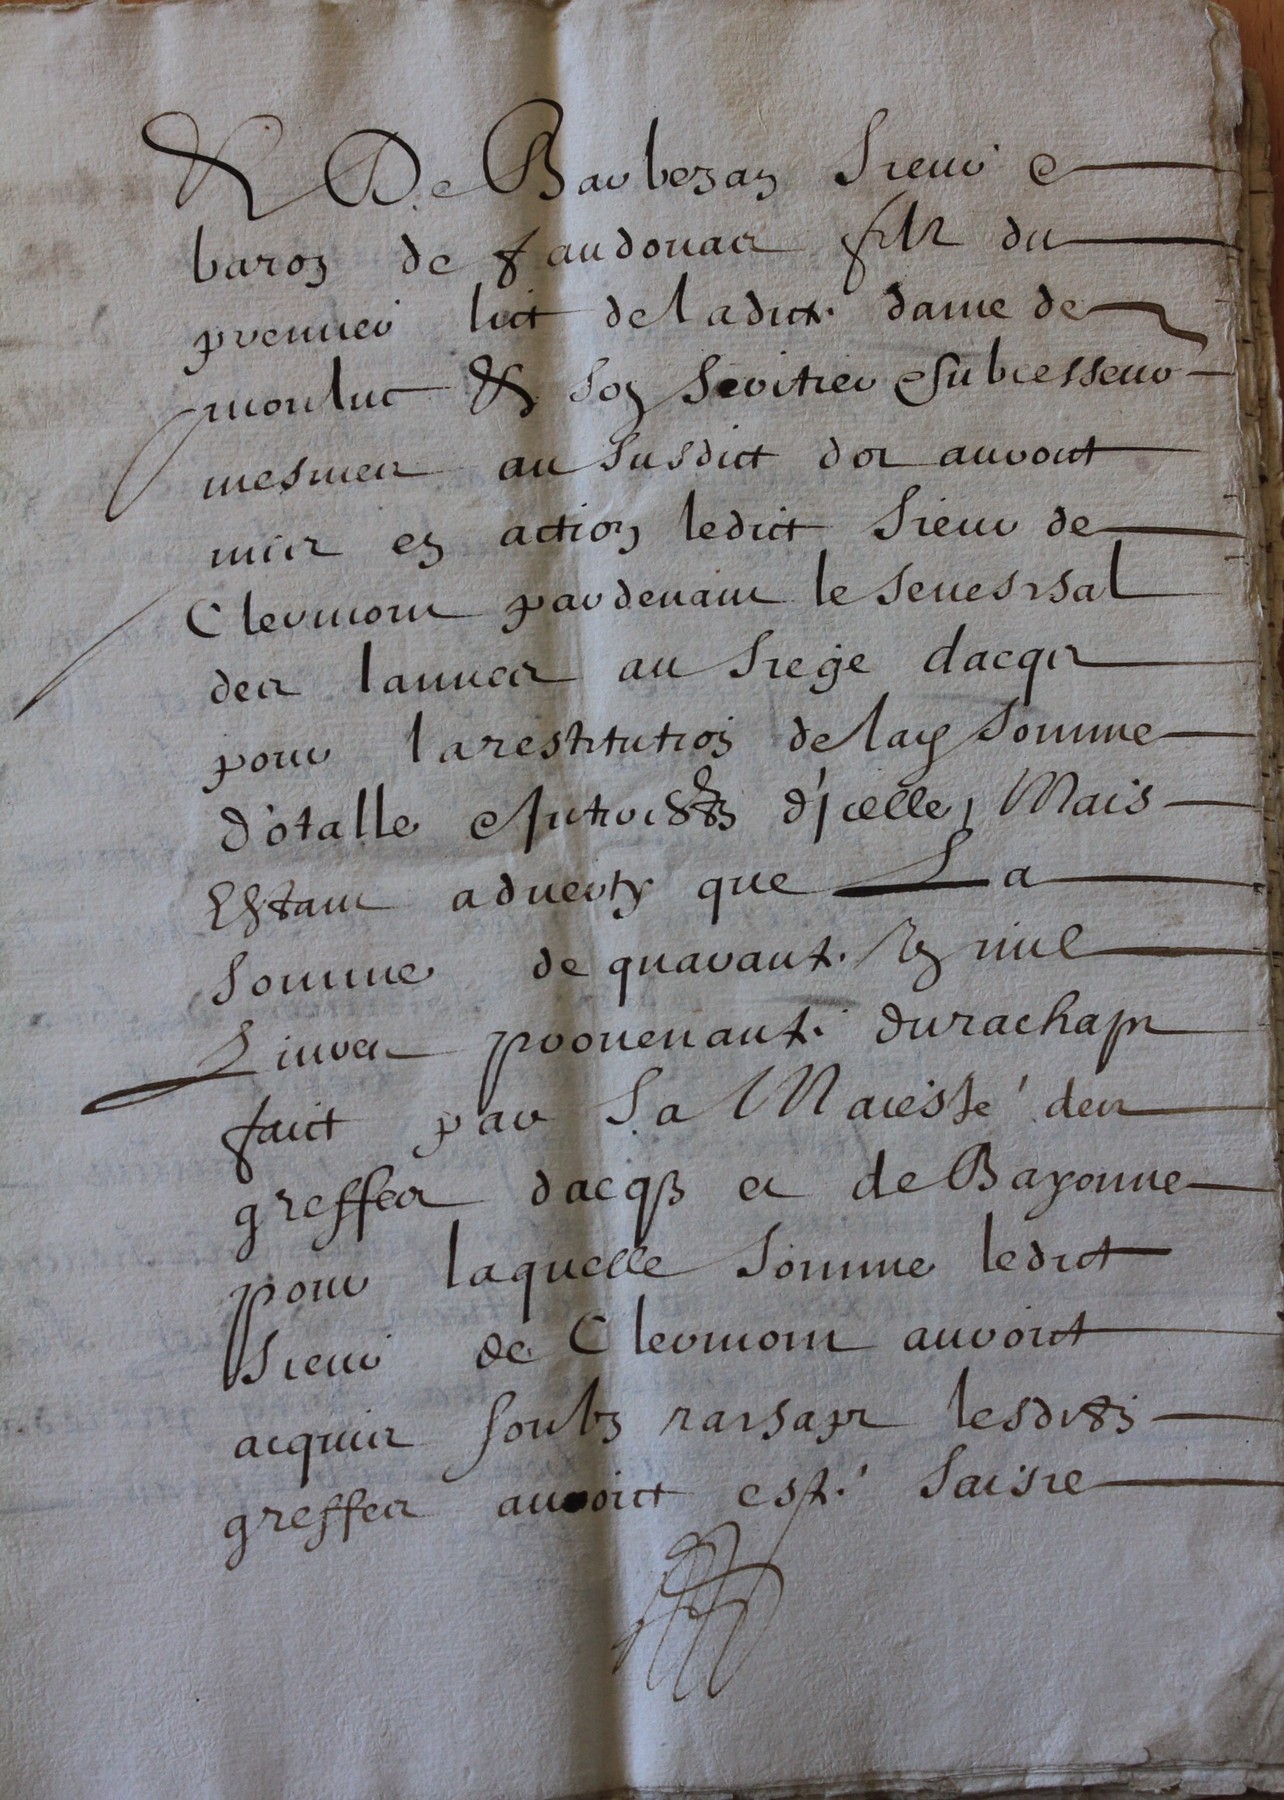 & De Barbezan sieur et
baron de faudouas filz du
premier lict de ladict. dame de
monluc & son heritier e subcesseur
mesmes au susdict dot auroict
mis en action ledict sieur de
Clermont pardevant le senessal
des lannes au siege dacqs
pour la restitution de lad somme
dotalle e intrestz d'icelle, Mais
Estant adverty que La
somme de quarant. mil
Livres provenant. du rachapt
faict par sa Maieste des
greffes dacqs et de Bayonne
pour laquelle somme ledict
sieur de Clermont auroict
acquis soubz rarsapt lesdits
greffes auroict esté saisie